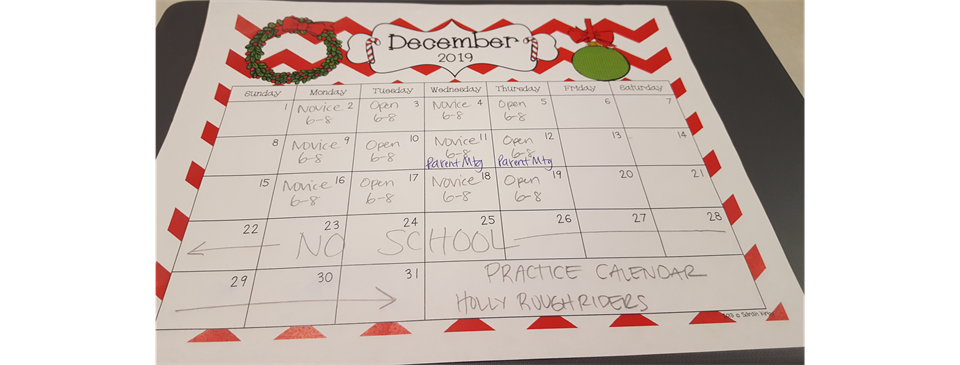 December
2019
Sunday Monday Tuesday Wednesday Thursday Friday Saturday
1 Novice 2 Open 3 Novice 4 Open 5 6 7
6-8 6-8 6-8 6-8
8 Novice 9 Open 10 Novice 11 Open 12 13 14
6-8 6-8 6-8 6-8
Parent Mtg Parent Mtg
15 Novice 16 Open 17 Novice 18 Open 19 20 21
6-8 6-8 6-8 6-8
22 23 24 25 26 27 28
NO SCHOOL
29 30 31
PRACTICE CALENDAR
HOLLY ROUGHRIDERS
© Sarah